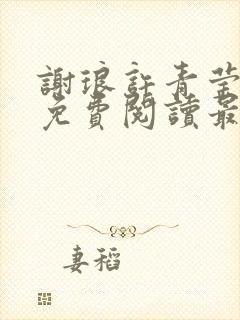 謝琅許青莹
免費閱讀最
妻稻